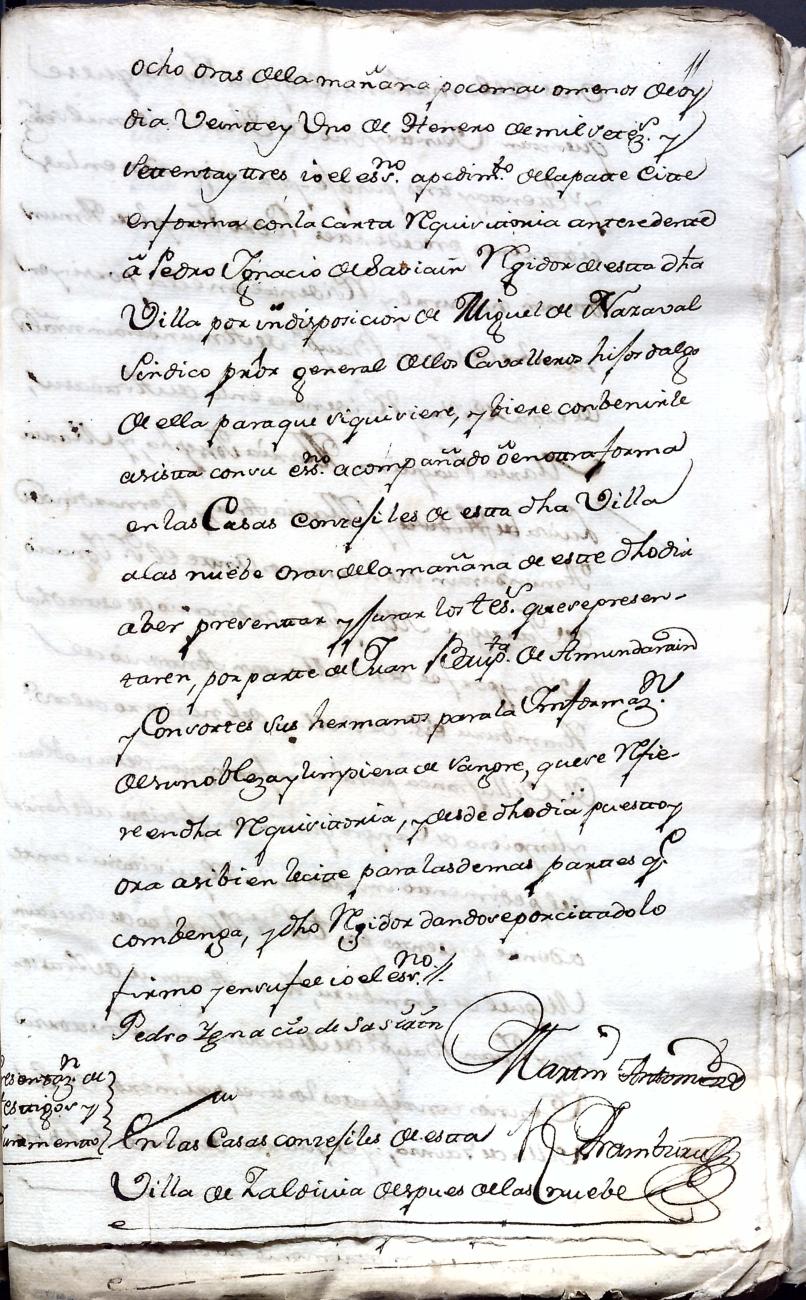 11
ocho oras de la mañana poco mas o menos de oy
dia Veintte y Uno de Henero de mil setezs. y
settenta y ttres io el essno. a pedimto. de la partte Citte
en forma con la cartta Requisittoria anttezedentte
â Pedro Ygnacio de Sasiain Regidor de estta dha
Villa por indisposicion de Miguel de Nazaval
Sindico pror general de los Cavalleros hijos dalgo
de ella para que si quisiere, y biere conbenirle
asistta con su essno. acompañado ô en ottra forma
en las Casas conzejiles de estta dha Villa
a las nuebe oras de la mañana de estte dho dia
a ber presenttar y jurar los tess. que se presen-
taren, por partte de Juan Bauptta. de Amundarain
y Consortes sus hermanos para la Ynformazn.
de su nobleza y limpieza de sangre, que se Refie-
re en dha Requisittoria, y desde dho dia puestto y
ora asi bien le citte para las demas parttes q.
combenga, y dho Regidor dandose por cittado lo
firmo y en su fee io el essno. //.
Pedro Ygnacio de Sasiain
Martin Antonio de
Aramburu
Presentazn. de
testtigos y
Juramentto
En las Casas conzejiles de estta
Villa de Zaldivia despues de las nuebe